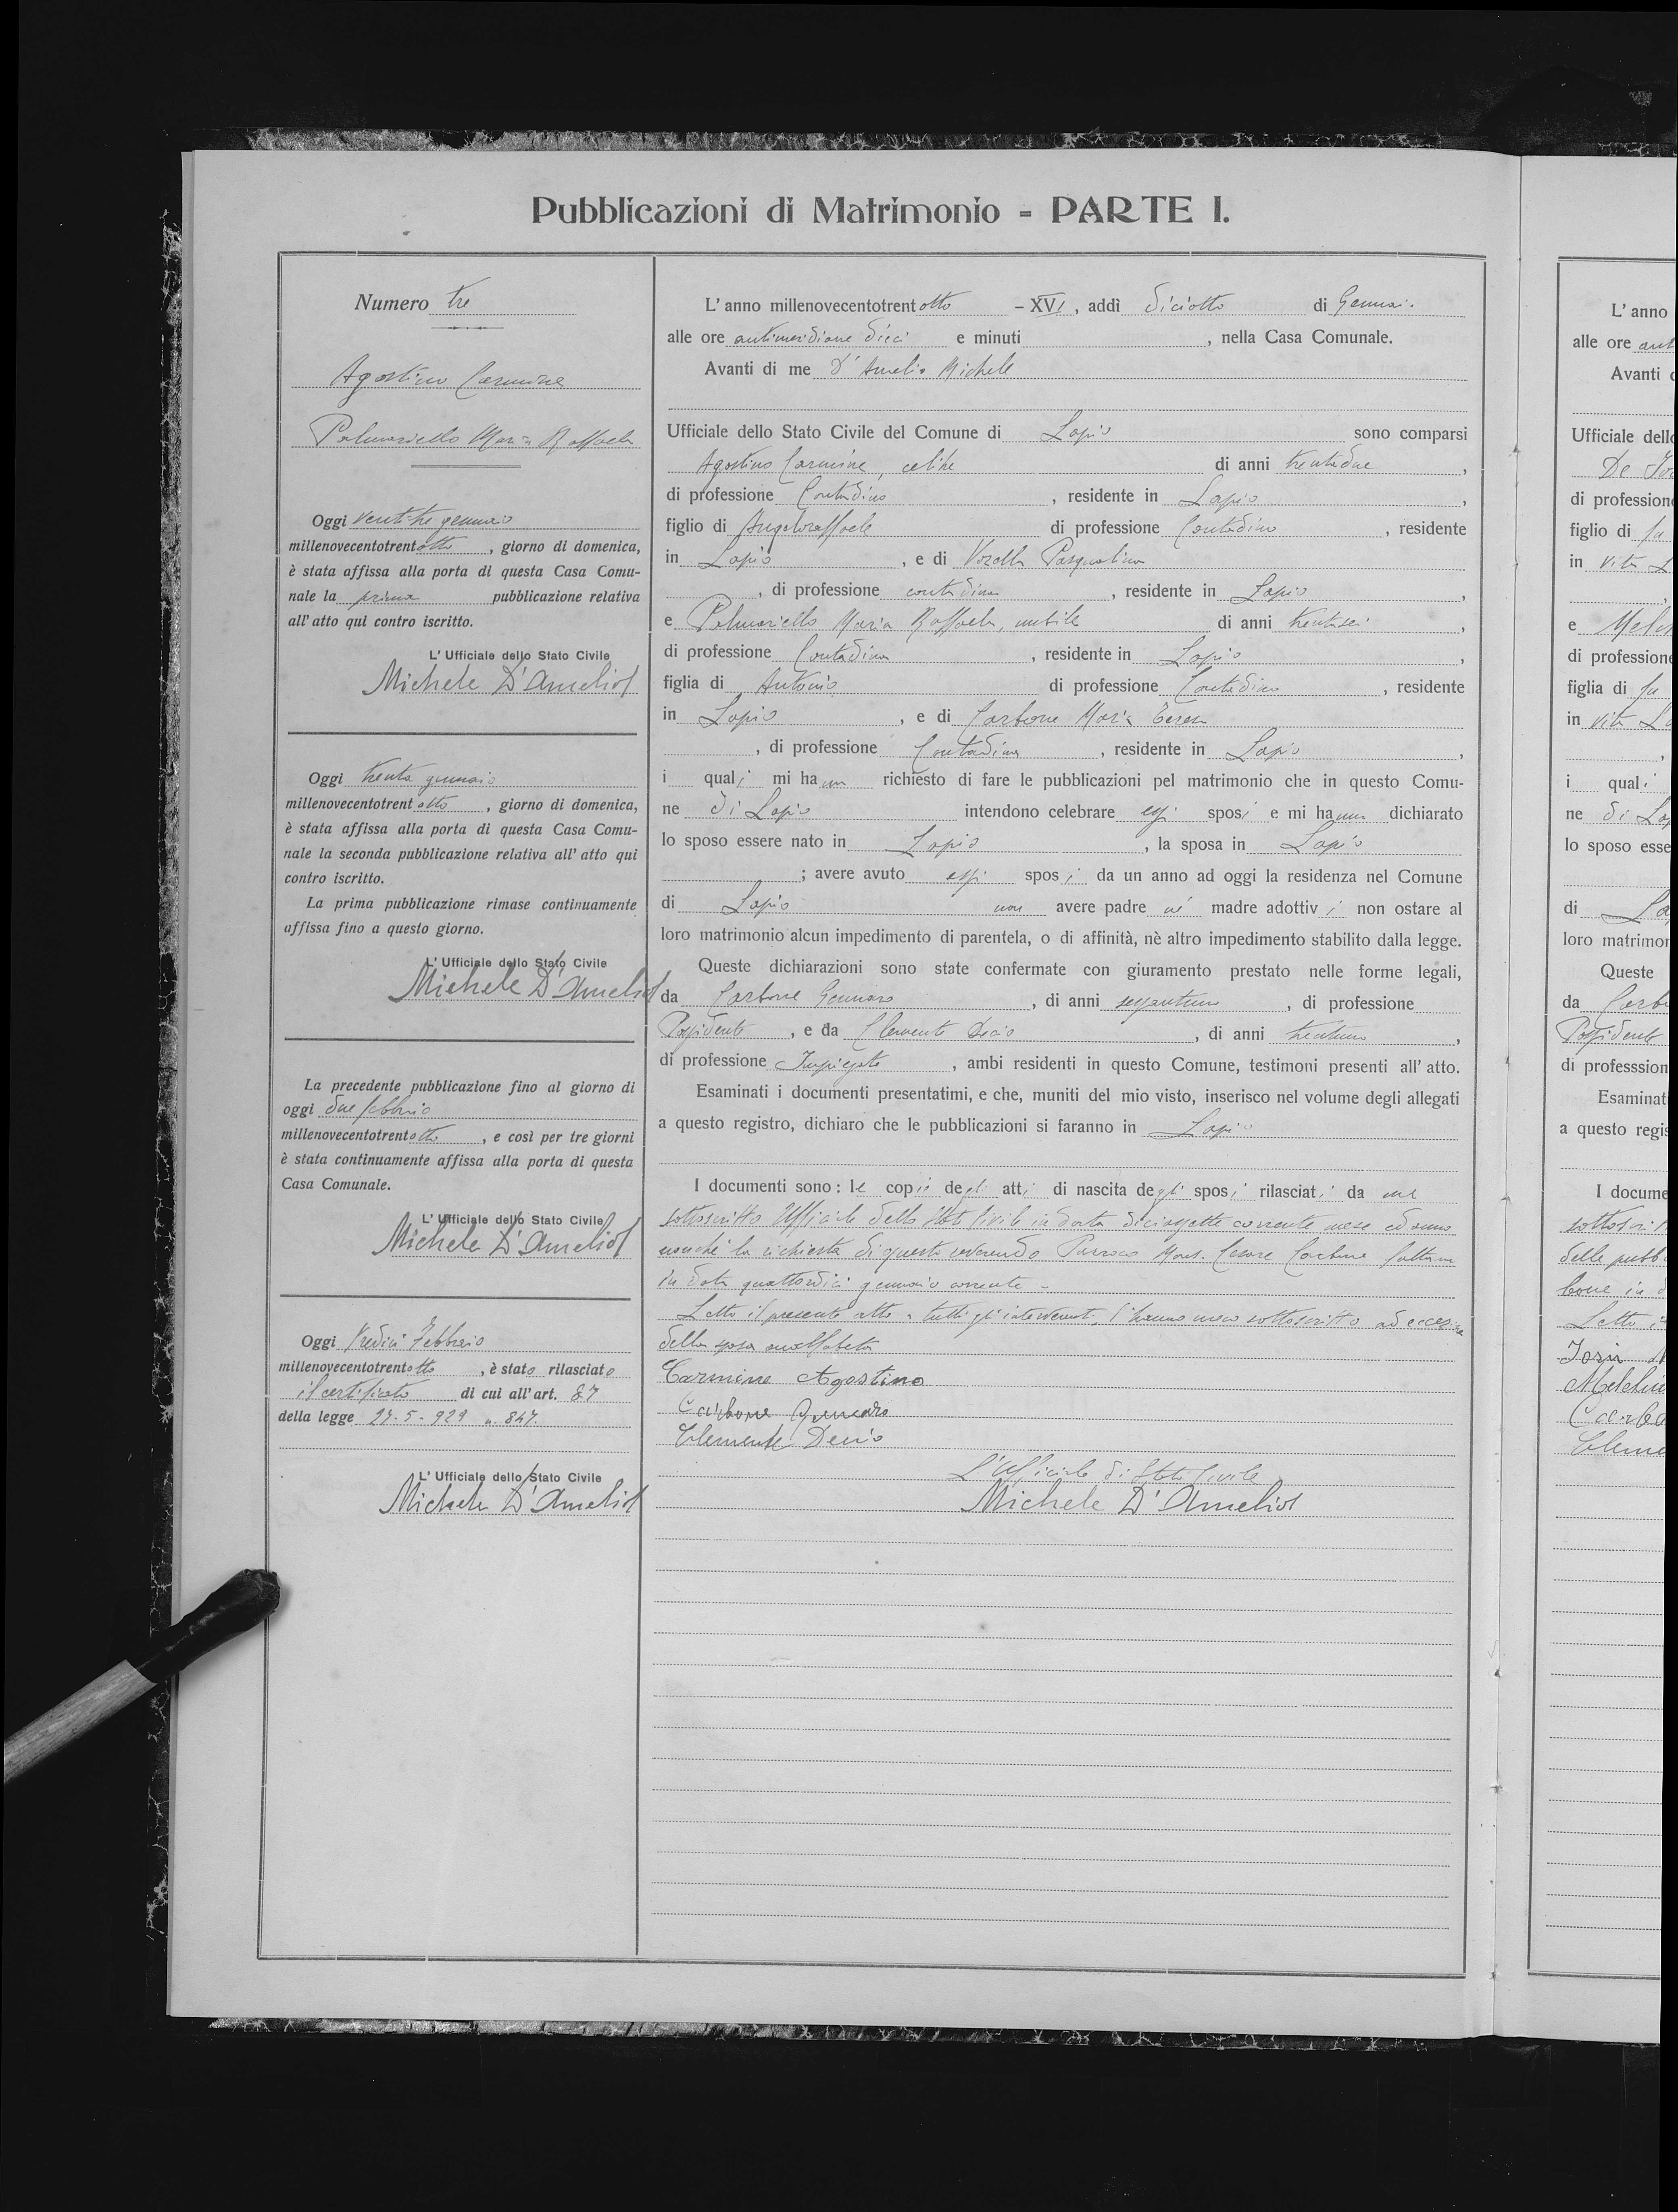 Pubblicazioni di Matrimonio - PARTE I.
Numero tre
Agostino Carmine
Palmariello Maria Raffaela
Oggi ventitre gennaio
millenovecentotrentotto, giorno di domenica,
è stata affissa alla porta di questa Casa Comu-
nale la prima pubblicazione relativa
all'atto qui contro iscritto.
L'Ufficiale dello Stato Civile
Michele D'Amelio
Oggi trenta gennaio
millenovecentotrentotto, giorno di domenica,
è stata affissa alla porta di questa Casa Comu-
nale la seconda pubblicazione relativa all'atto qui
contro iscritto.
La prima pubblicazione rimase continuamente
affissa fino a questo giorno.
L'Ufficiale dello Stato Civile
Michele D'Amelio
La precedente pubblicazione fino al giorno di
oggi due febbraio
millenovecentotrentotto, e così per tre giorni
è stata continuamente affissa alla porta di questa
Casa Comunale.
L'Ufficiale dello Stato Civile
Michele D'Amelio
Oggi tredici Febbraio
millenovecentotrentotto, è stato rilasciato
il certificato di cui all'art. 87
della legge 27-5-929 n. 847.
L'Ufficiale dello Stato Civile
Michele D'Amelio
L'anno millenovecentotrentotto - XVI, addì diciotto di Gennaio
alle ore antimeridiane dieci e minuti , nella Casa Comunale.
Avanti di me D'Amelio Michele
Ufficiale dello Stato Civile del Comune di Lapio sono comparsi
Agostino Carmine, celibe di anni trentadue,
di professione Contadino, residente in Lapio,
figlio di Angeloraffaele di professione Contadino, residente
in Lapio, e di Vozella Pasqualina
, di professione contadina, residente in Lapio,
e Palmariello Maria Raffaela, nubile di anni trentasei,
di professione Contadina, residente in Lapio,
figlia di Antonio di professione Contadino, residente
in Lapio, e di Carbone Maria Teresa
, di professione Contadina, residente in Lapio,
i quali mi hanno richiesto di fare le pubblicazioni pel matrimonio che in questo Comu-
ne di Lapio intendono celebrare essi sposi e mi hanno dichiarato
lo sposo essere nato in Lapio, la sposa in Lapio
; avere avuto essi sposi da un anno ad oggi la residenza nel Comune
di Lapio non avere padre né madre adottivi non ostare al
loro matrimonio alcun impedimento di parentela, o di affinità, nè altro impedimento stabilito dalla legge.
Queste dichiarazioni sono state confermate con giuramento prestato nelle forme legali,
da Carbone Gennaro, di anni sessantuno, di professione
Possidente, e da Clemente Decio, di anni trentuno,
di professione Impiegato, ambi residenti in questo Comune, testimoni presenti all'atto.
Esaminati i documenti presentatimi, e che, muniti del mio visto, inserisco nel volume degli allegati
a questo registro, dichiaro che le pubblicazioni si faranno in Lapio
I documenti sono: le copie degli atti di nascita degli sposi rilasciati da me
sottoscritto Ufficiale dello Stato Civile in data diciassette corrente mese ed anno
nonché la richiesta di questo reverendo Parroco Mons. Cesare Carbone fattami
in data quattordici gennaio corrente -
Letto il presente atto a tutti gli intervenuti, l'hanno meco sottoscritto ad eccezione
della sposa analfabeta
Carmine Agostino
Carbone Gennaro
Clemente Decio
L'Ufficiale di Stato Civile
Michele D'Amelio
L'anno
alle ore ant
Avanti
Ufficiale dell
di professione
figlio di fu
in vita
e
di professione
figlia di fu
in vita
i quali
ne di
lo sposo esse
di
loro matrimo
Queste
da Carb
Possidente
di professsion
Esaminat
a questo regis
I docume
sottoscri
delle pubb
bone in
Letto
Clem